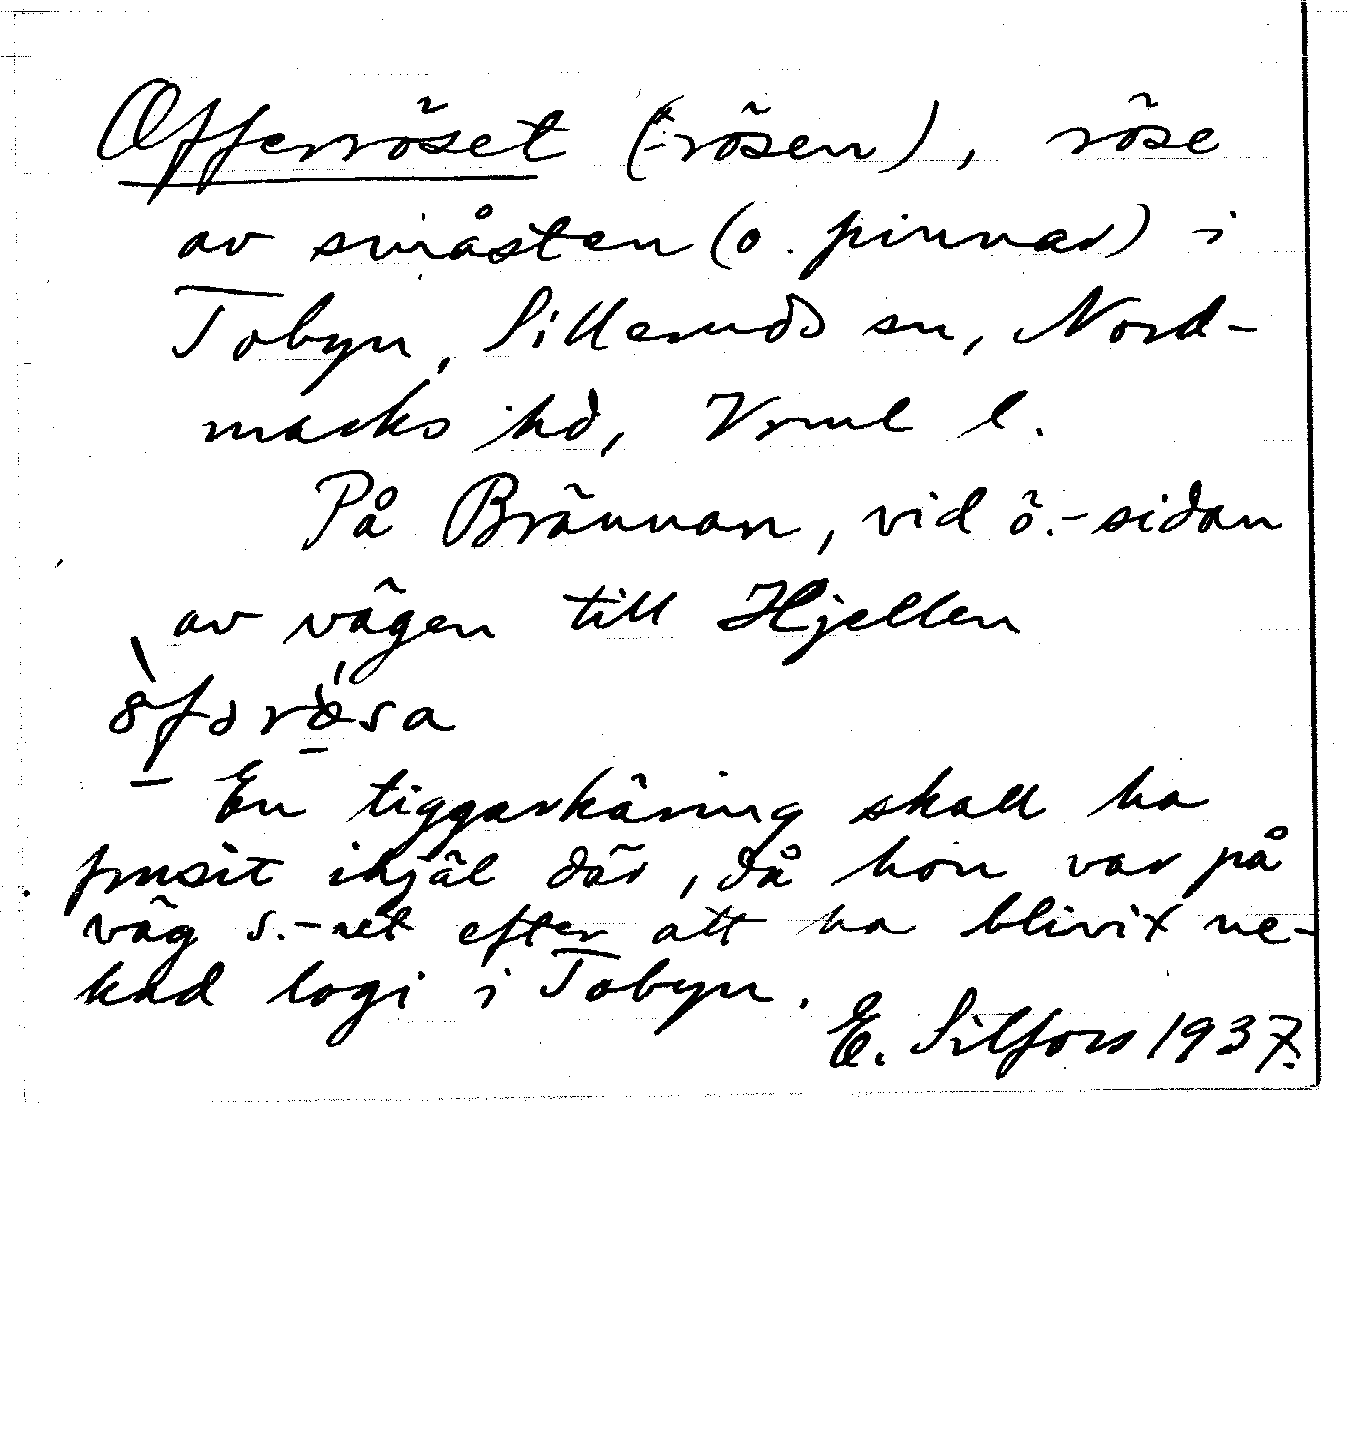 Offerröset (-rösen), röse
av småsten (o. pinnar) i
Tobyn, Silleruds sn, Nord-
marks hd, Vrml l.
På Brännan, vid ö.-sidan
av vägen till Hjellen
En tiggarkäring skall ha
frusit ihjäl där, då hon var på
väg s.-ut efter att ha blivit ne-
kad logi i Tobyn.
E. Silfors 1937.